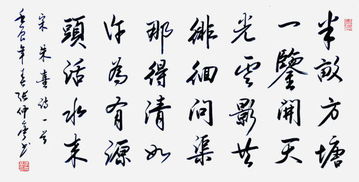 半畝方塘
一鑒開天
光雲影共
徘徊問渠
那得清如
許為有源
頭活水来
宋朱熹詩一首
壬辰年